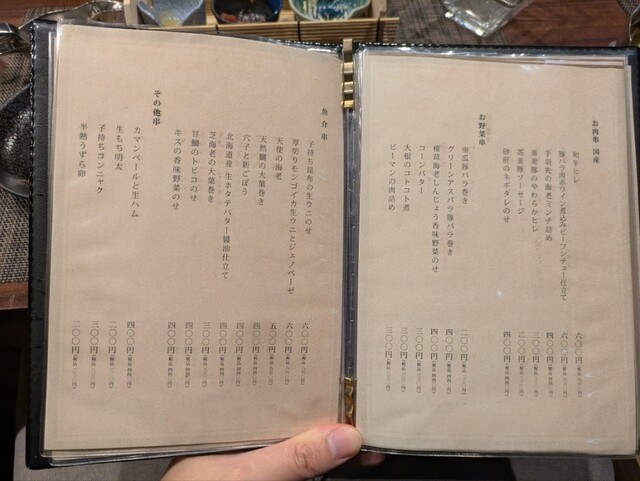 お肉串 国産
和牛ヒレ 六〇〇円
豚バラ肉赤ワイン煮込みビーフシチュー仕立て 六〇〇円
手羽先の海老ミンチ詰め 四〇〇円
茶美豚のやわらかヒレ 三〇〇円
茶美豚ソーセージ 二〇〇円
砂肝のネギダレのせ 四〇〇円
お野菜串
南瓜豚バラ巻き 二〇〇円
グリーンアスパラ豚バラ巻き 四〇〇円
椎茸海老しんじょう香味野菜のせ 四〇〇円
コーンバター 三〇〇円
大根のコトコト煮 三〇〇円
ピーマンの肉詰め 三〇〇円
魚介串
子持ち昆布の生ウニのせ 六〇〇円
厚切りモンゴイカ生ウニとジェノベーゼ 六〇〇円
天使の海老 五〇〇円
天然鯛の大葉巻き 四〇〇円
穴子と新ごぼう 四〇〇円
北海道産 生ホタテバター醤油仕立て 四〇〇円
芝海老の大葉巻き 三〇〇円
甘鯛のトビコのせ 四〇〇円
キスの香味野菜のせ 四〇〇円
その他串
カマンベールと生ハム 四〇〇円
生もち明太 二〇〇円
子持ちコンニャク 三〇〇円
半熟うずら卵 二〇〇円